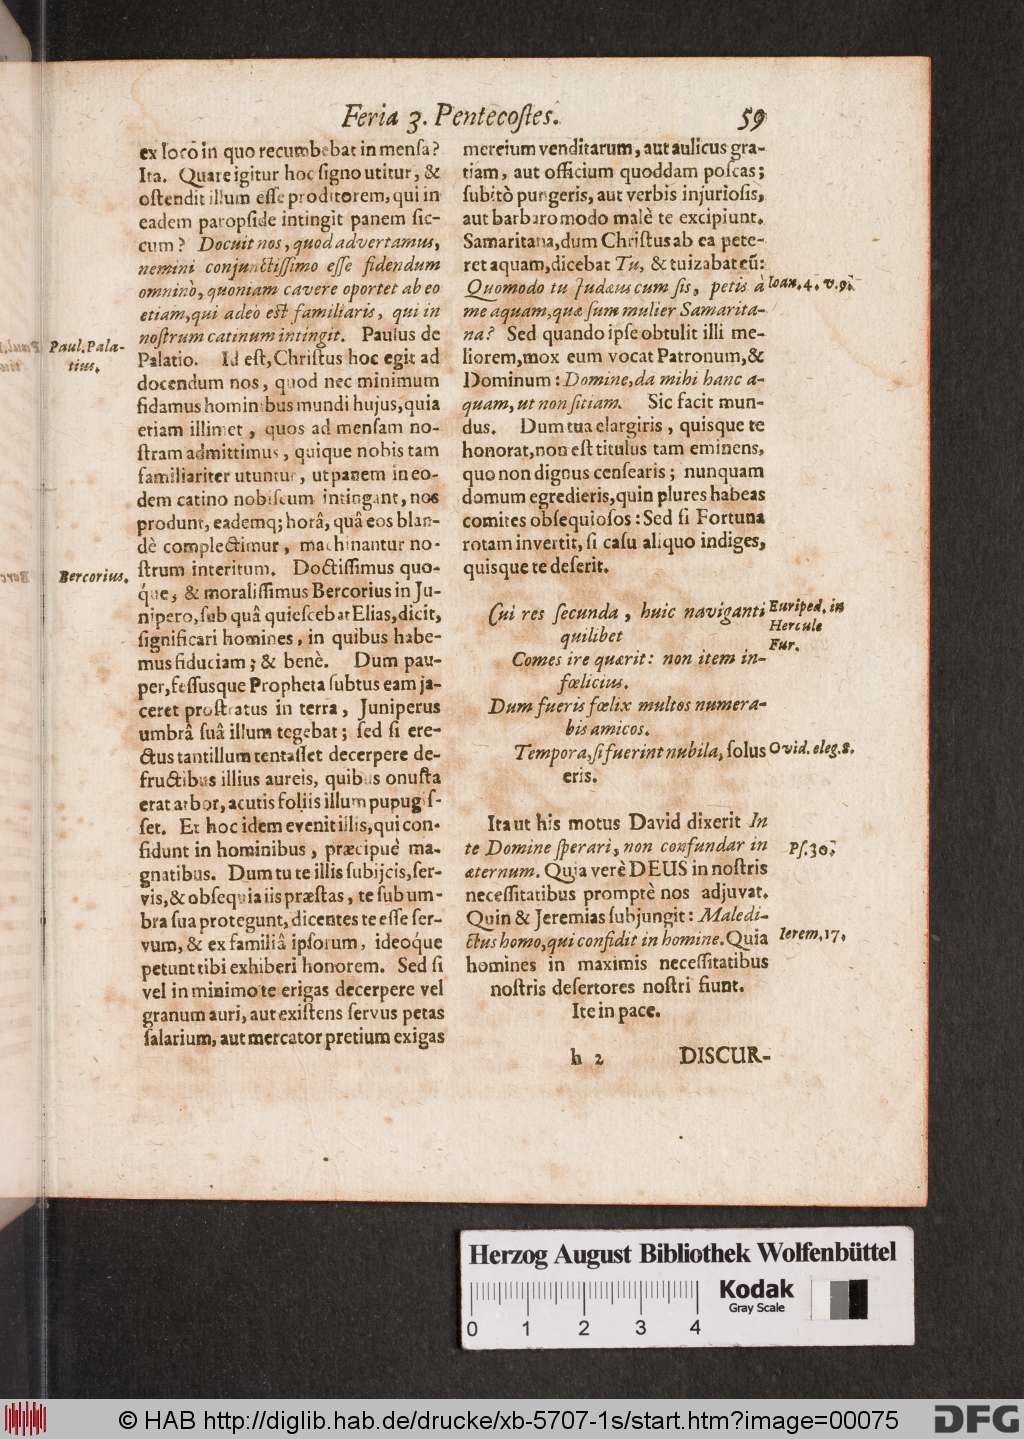 Feria 3. Pentecoſtes.
59
ex loco in quo recumbebat in menſa?
Ita. Quare igitur hoc ſigno utitur, &
oſtendit illum eſſe proditorem, qui in
eadem paropſide intingit panem ſic-
cum? Docuit nos, quod advertamus,
nemini conjunctiſſimo eſſe fidendum
omninò, quoniam cavere oportet ab eo
etiam, qui adeò eſt familiaris, qui in
noſtrum catinum intingit. Paulus de
Palatio. Id eſt, Chriſtus hoc egit ad
docendum nos, quod nec minimum
fidamus hominibus mundi hujus, quia
etiam illimet, quos ad menſam no-
ſtram admittimus, quique nobis tam
familiariter utuntur, ut panem in eo-
dem catino nobiſcum intingant, nos
produnt, eademq; horâ, quâ eos blan-
dè complectimur, machinantur no-
ſtrum interitum. Doctiſſimus quo-
q́ue, & moraliſſimus Bercorius in Ju-
nipero, ſub quâ quieſcebat Elias, dicit,
ſignificari homines, in quibus habe-
mus fiduciam; & benè. Dum pau-
per, feſſusque Propheta ſubtus eam ja-
ceret proſtratus in terra, Juniperus
umbrâ ſuâ illum tegebat; ſed ſi ere-
ctus tantillum tentaſſet decerpere de
fructibus illius aureis, quibus onuſta
erat arbor, acutis foliis illum pupugiſ-
ſet. Et hoc idem evenit illis, qui con-
fidunt in hominibus, præcipuè ma-
gnatibus. Dum tu te illis ſubijcis, ſer-
vis, & obſequia iis præſtas, te ſub um-
bra ſua protegunt, dicentes te eſſe ſer-
vum, & ex familiâ ipſorum, ideoq́ue
petunt tibi exhiberi honorem. Sed ſi
vel in minimo te erigas decerpere vel
granum auri, aut exiſtens ſervus petas
ſalarium, aut mercator pretium exigas
Paul. Pala-
tius.
Bercorius.
mercium venditarum, aut aulicus gra-
tiam, aut officium quoddam poſcas;
ſubitò pungeris, aut verbis injurioſis,
aut barbaro modo malè te excipiunt.
Samaritana, dum Chriſtus ab ea pete-
ret aquam, dicebat Tu, & tuizabat eũ:
Quomodo tu Judæus cum ſis, petis à
me aquam, quæ ſum mulier Samarita-
na? Sed quando ipſe obtulit illi me-
liorem, mox eum vocat Patronum, &
Dominum: Domine, da mihi hanc a-
quam, ut non ſitiam. Sic facit mun-
dus. Dum tua elargiris, quisque te
honorat, non eſt titulus tam eminens,
quo non dignus cenſearis; nunquam
domum egredieris, quin plures habeas
comites obſequioſos: Sed ſi Fortuna
rotam invertit, ſi caſu aliquo indiges,
quisque te deſerit.
Cui res ſecunda, huic naviganti
quilibet
Comes ire quærit: non item in-
fœlicius.
Dum fueris fœlix multos numera-
bis amicos.
Tempora, ſi fuerint nubila, ſolus
eris.
Ita ut his motus David dixerit In
te Domine ſperavi, non confundar in
æternum. Quia verè DEUS in noſtris
neceſſitatibus promptè nos adjuvat.
Quin & Jeremias ſubjungit: Maledi-
ctus homo, qui confidit in homine. Quia
homines in maximis neceſſitatibus
noſtris deſertores noſtri fiunt.
Ite in pace.
Ioan. 4. v. 9.
Euriped. in
Hercule
Fur.
Ovid. eleg. 8.
Pſ. 30.
Ierem. 17.
h 2
DISCUR-
Herzog August Bibliothek Wolfenbüttel
0 1 2 3 4
Kodak
Gray Scale
© HAB http://diglib.hab.de/drucke/xb-5707-1s/start.htm?image=00075
DFG